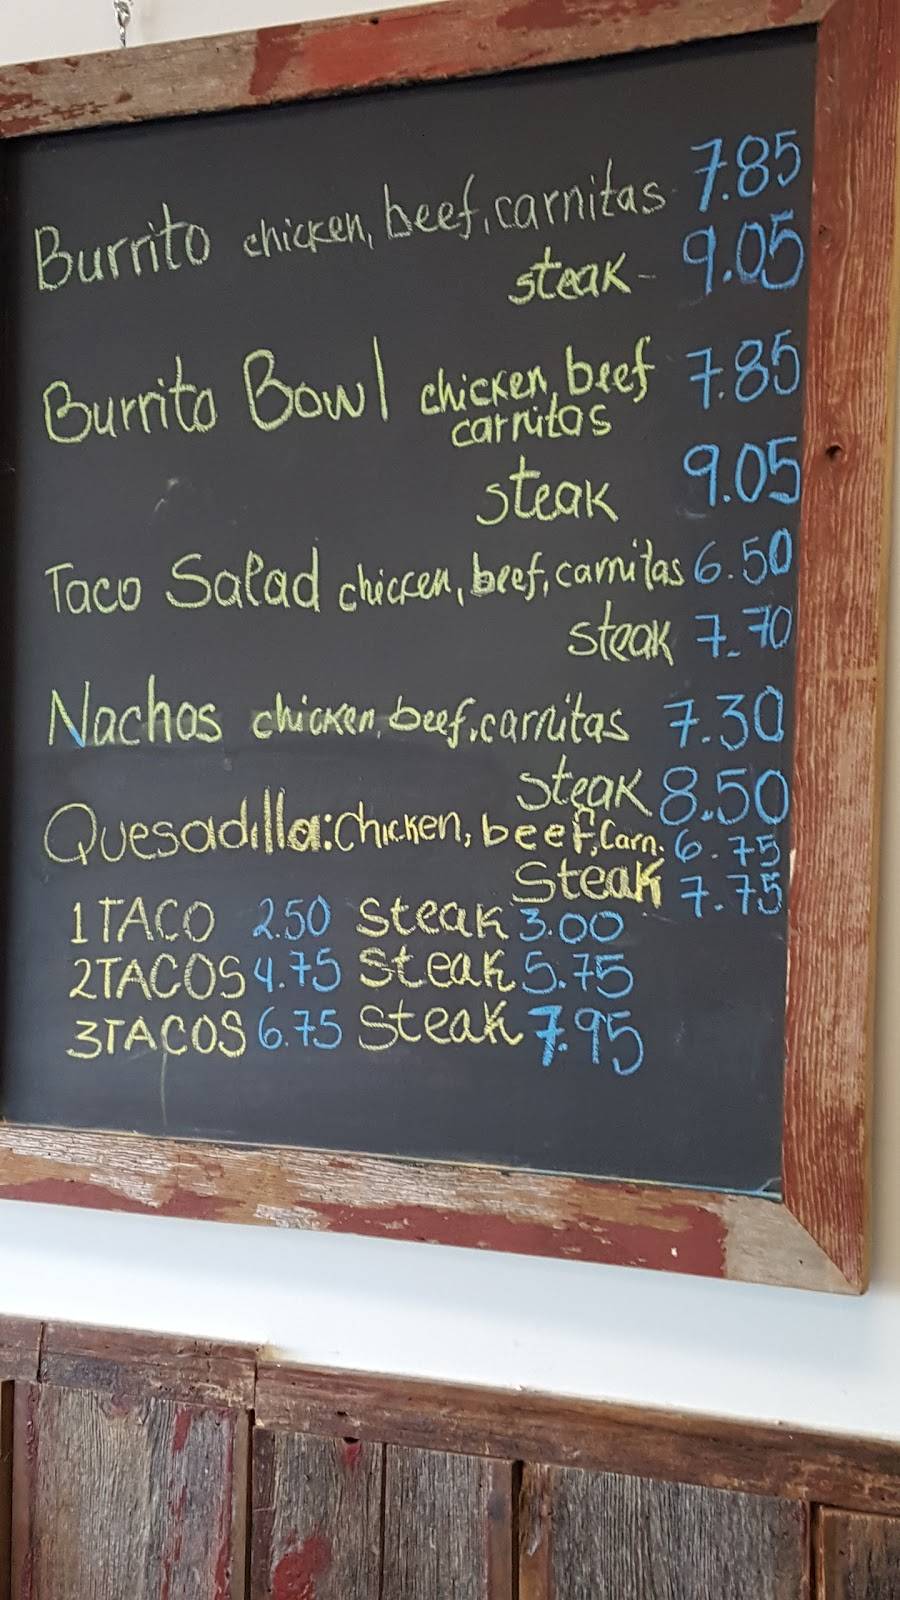 Burrito chicken, beef, carnitas 7.85
steak - 9.05
Burrito Bowl chicken, beef 7.85
carnitas
steak 9.05
Taco Salad chicken, beef, carnitas 6.50
steak 7.70
Nachos chicken, beef, carnitas 7.30
steak 8.50
Quesadilla: chicken, beef, Carn. 6.75
Steak 7.75
1 TACO 2.50 Steak 3.00
2 TACOS 4.75 Steak 5.75
3 TACOS 6.75 Steak 7.95